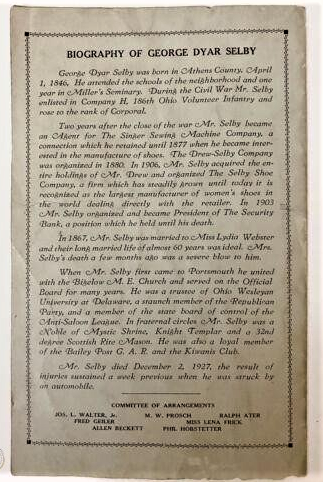 BIOGRAPHY OF GEORGE DYAR SELBY
George Dyar Selby was born in Athens County, April
1, 1846. He attended the schools of the neighborhood and one
year in Miller's Seminary. During the Civil War Mr. Selby
enlisted in Company H, 186th Ohio Volunteer Infantry and
rose to the rank of Corporal.
Two years after the close of the war Mr. Selby became
an Agent for The Singer Sewing Machine Company, a
connection which he retained until 1877 when he became inter-
ested in the manufacture of shoes. The Drew-Selby Company
was organized in 1880. In 1906, Mr. Selby acquired the en-
tire holdings of Mr. Drew and organized The Selby Shoe
Company, a firm which has steadily grown until today it is
recognized as the largest manufacturer of women's shoes in
the world dealing directly with the retailer. In 1903
Mr. Selby organized and became President of The Security
Bank, a position which he held until his death.
In 1867, Mr. Selby was married to Miss Lydia Webster
and their long married life of almost 60 years was ideal. Mrs.
Selby's death a few months ago was a severe blow to him.
When Mr. Selby first came to Portsmouth he united
with the Bigelow M. E. Church and served on the Official
Board for many years. He was a trustee of Ohio Wesleyan
University at Delaware, a staunch member of the Republican
Party, and a member of the state board of control of the
Anti-Saloon League. In fraternal circles Mr. Selby was a
Noble of Mystic Shrine, Knight Templar and a 32nd
degree Scottish Rite Mason. He was also a loyal member
of the Bailey Post G. A. R. and the Kiwanis Club.
Mr. Selby died December 2, 1927, the result of
injuries sustained a week previous when he was struck by
an automobile.
COMMITTEE OF ARRANGEMENTS
JOS. L. WALTER, Jr. M. W. PROSCH RALPH ATER
FRED GEILER MISS LENA FRICK
ALLEN BECKETT PHIL HOBSTETTER